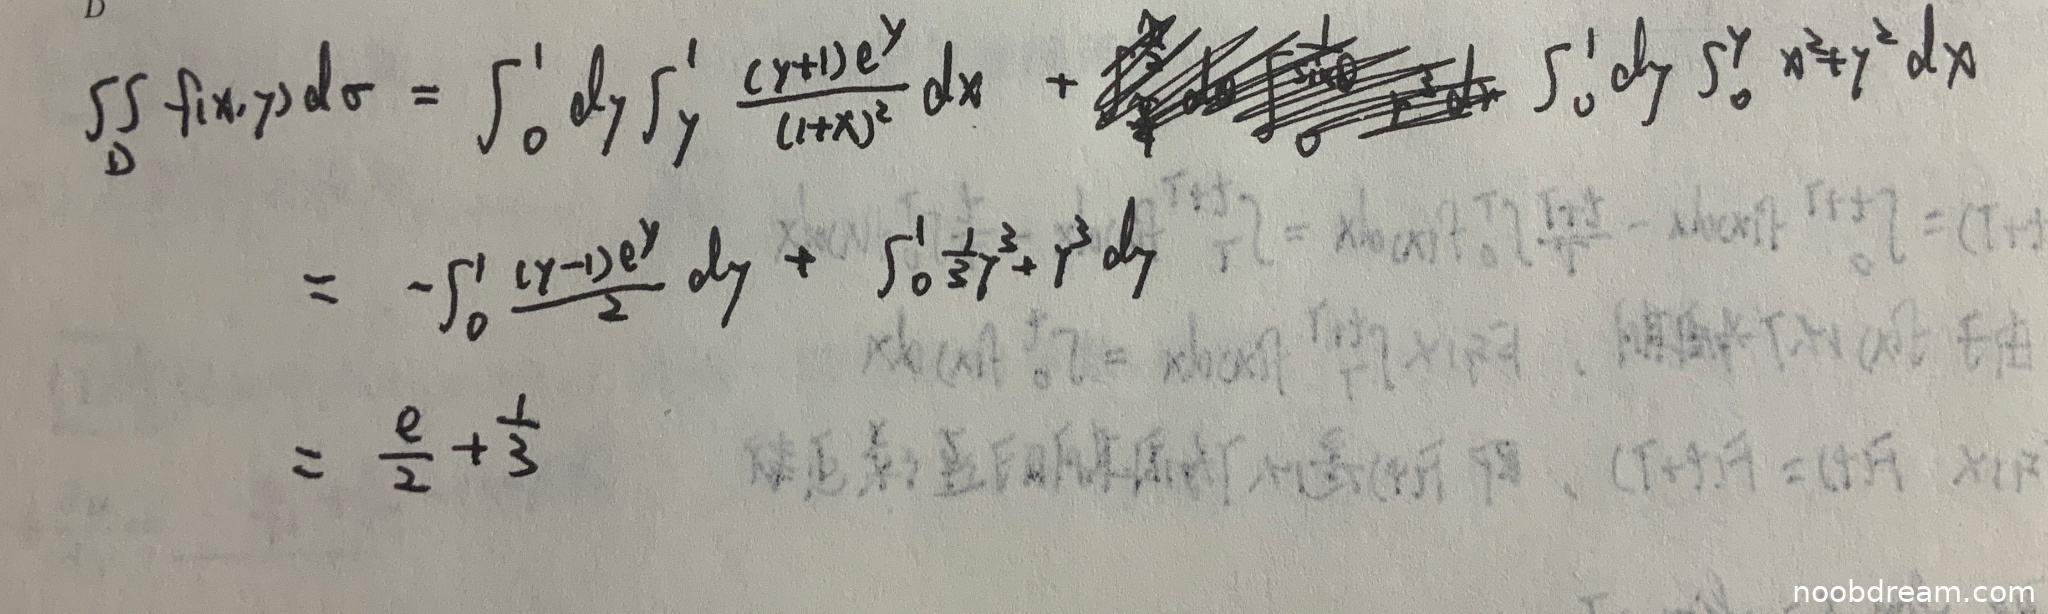 D
∬_D f(x,y)dσ = ∫_0^1 dy ∫_y^1 (y+1)e^y/(1+x)^2 dx + ∫_0^1 dy ∫_0^y x^2+y^2 dx
= -∫_0^1 (y-1)e^y/2 dy + ∫_0^1 1/3 y^3 + y^3 dy
= e/2 + 1/3
noobdream.com